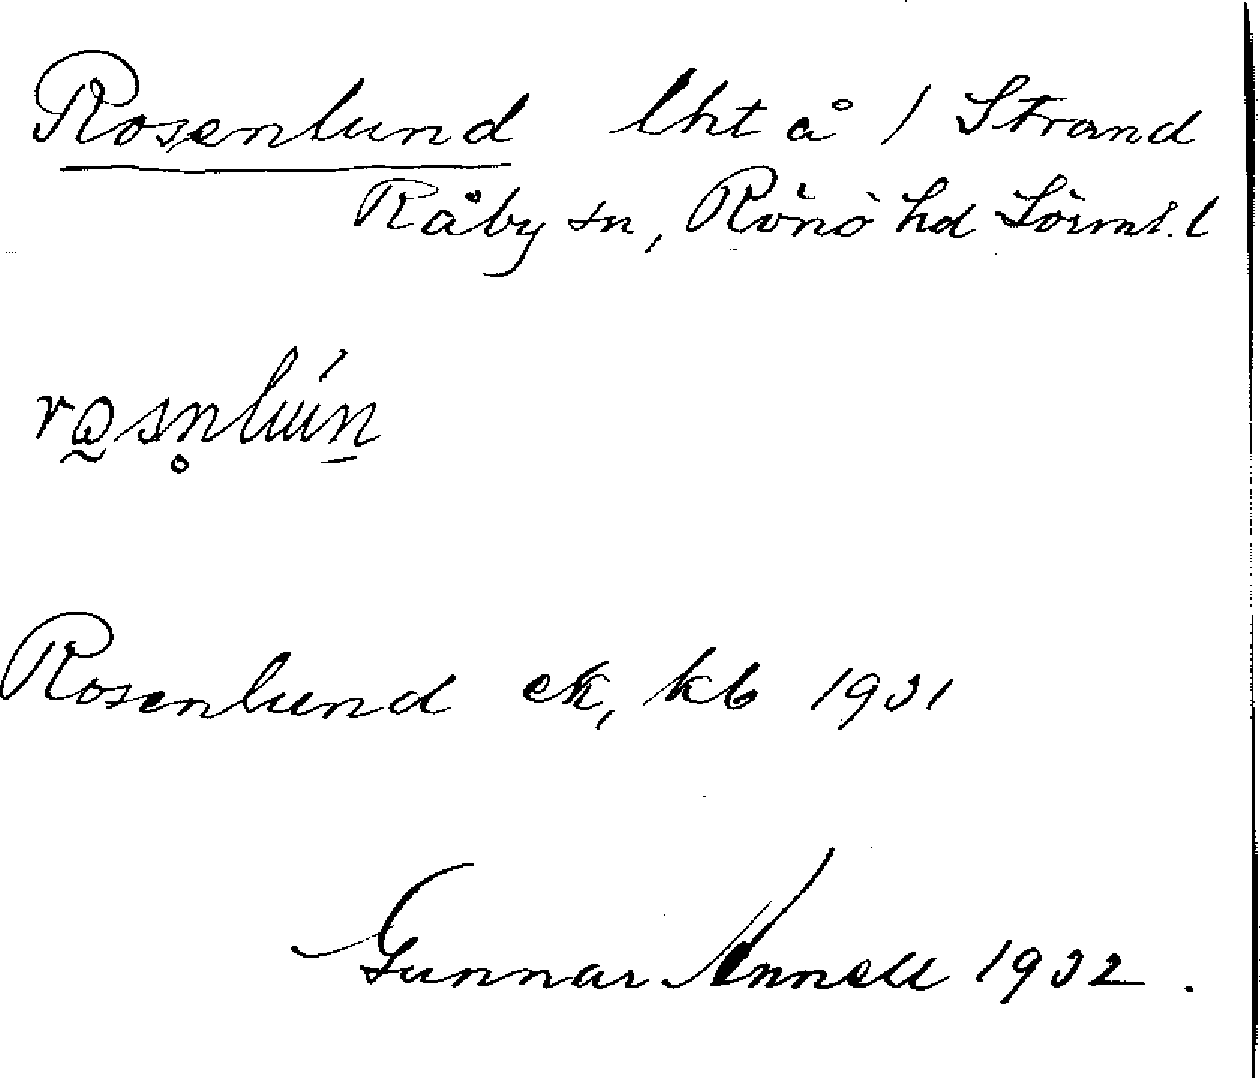 Rosenlund lht å / Strand
Råby sn, Rönö hd Sörml. l
Rosenlund ek, kb 1931
Gunnar Annell 1932.